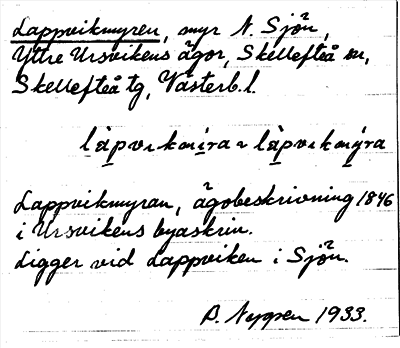 Lappvikmyren, myr N. Sjön,
Yttre Ursvikens ägor, Skellefteå sn,
Skellefteå tg, Västerb. l.
Lappvikmyran, ägobeskrivning 1846
i Ursvikens byaskrin.
Ligger vid Lappviken i Sjön.
B. Nygren 1933.